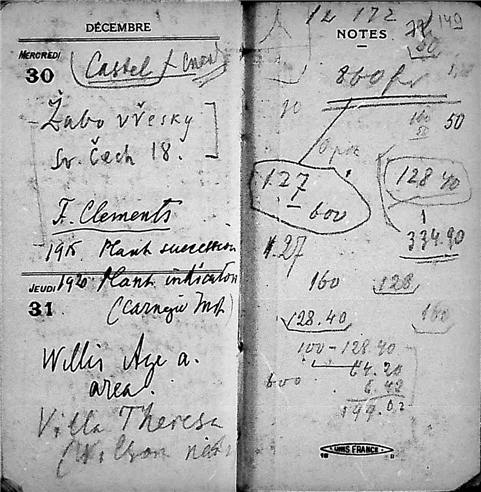 DÉCEMBRE
MERCREDI
30
Castel
Žabo vřesky
Sv. Čech 18.
F. Clements
1916 Plant succession
1920 Plant indicators
(Carnegie Inst.)
JEUDI
31
Willis Age a.
area.
Villa Theresa
(Wilson
12 172
NOTES
50
860 fr
50
127
600
128 40
334.90
1.27
160
128
128.40
160
100-128.40
64.20
6.42
600
199.02
UNIS FRANCE